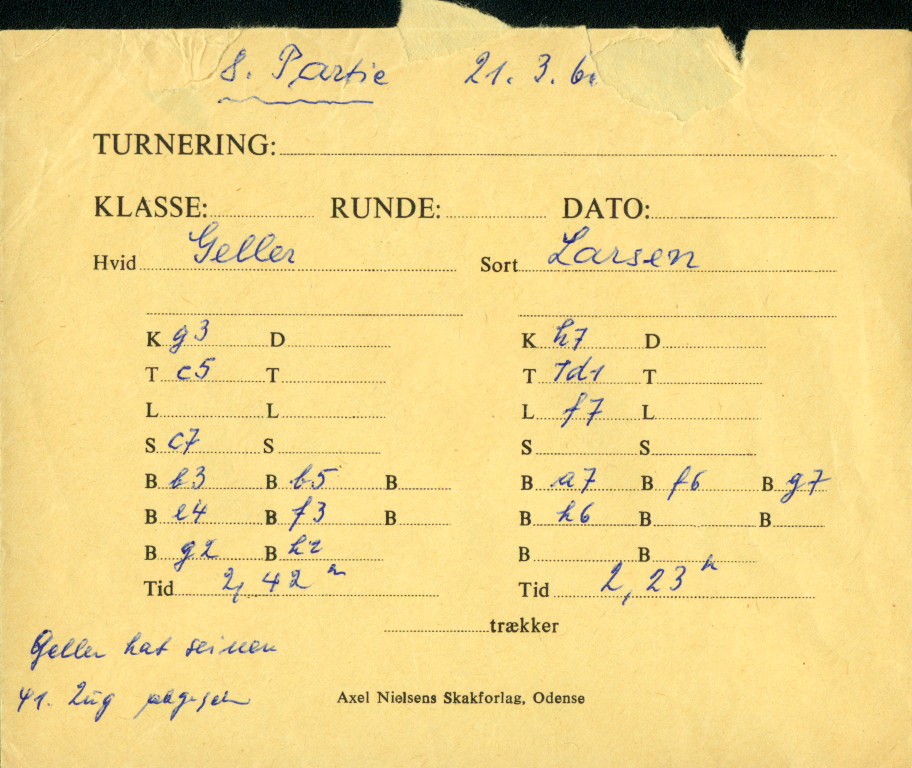 8. Partie 21. 3. 6
TURNERING:
KLASSE: RUNDE: DATO:
Hvid Geller Sort Larsen
K g3 D K h7 D
T c5 T T Td1 T
L L L f7 L
S c7 S S S
B b3 B b5 B B a7 B f6 B g7
B e4 B f3 B B h6 B B
B g2 B h2 B B
Tid 2,42 Tid 2,23 h
trækker
Geller hat seinen
41. Zug
Axel Nielsens Skakforlag, Odense